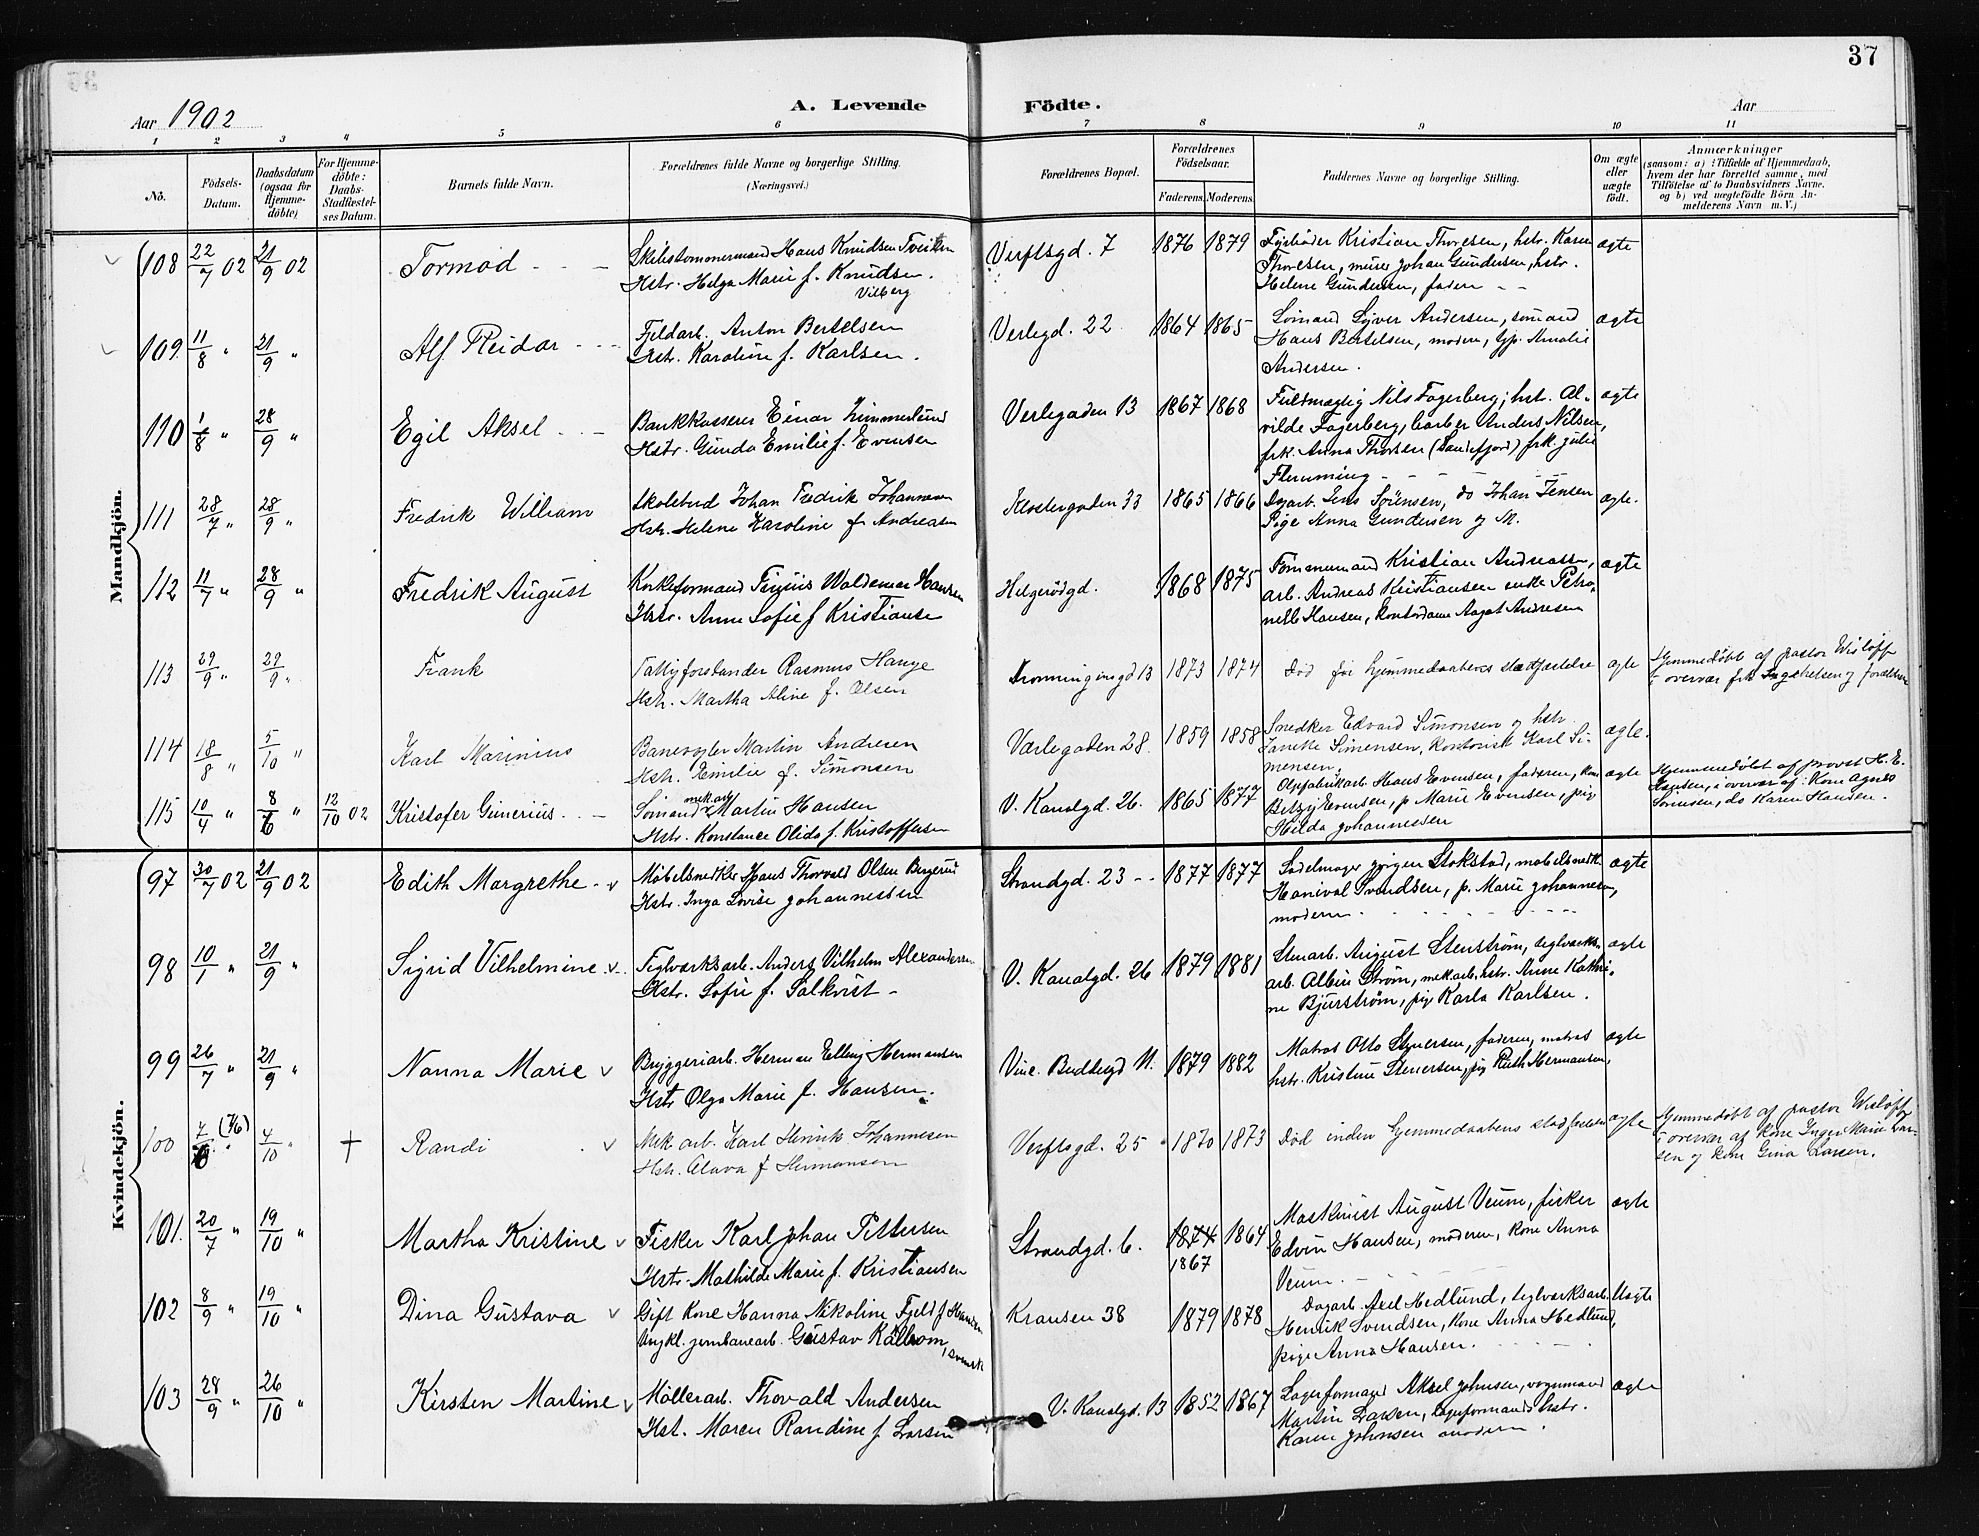 37
Aar 1902
A. Levende Födte.
Aar
1 2 3 4 5 6 7 8 9 10 11
No.
Födsels-Datum.
Daabsdatum (ogsaa for Hjemme-döbte)
For Hjemme-döbte: Daabs-Stadfæstel-ses Datum.
Barnets fulde Navn.
Forældrenes fulde Navne og borgerlige Stilling.
(Næringsvei.)
Forældrenes Bopæl.
Forældrenes Födselsaar.
Faderens Moderens
Faddernes Navne og borgerlige Stilling.
Om ægte eller uægte födt.
Anmærkninger
(saasom: a) i Tilfælde af Hjemmedaab,
hvem der har forrettet samme, med
Tilföielse af to Daabsvidners Navne,
og b) ved uægtefödte Börn An-
melderens Navn m. V.)
Mandkjön.
108 22/7 02 21/9 02 Tormod Hans Knudsen Tveiten Verftsgd. 7 1876 1879 Fyrbøder Kristian Thoresen, hstr. Karen ægte
Hstr. Helga Marie f. Knudsen. Thoresen, murer Johan Gundersen, hstr.
Vilberg Helene Gundersen, faderen
109. 11/8 " 21/9 " Alf Reidar Fjeldarb. Anton Bertelsen Verlegd. 22 1864 1865 Sømand Andersen, sømand ægte
Hstr. Karoline f. Karlsen. Hans Bertelsen, moderen, Amalie
Andersen.
110 1/8 " 28/9 " Egil Aksel Bankkasserer Einar Zimmerlund Verlegaden 13 1867 1868 Nils Fagerberg, hst. Al- ægte
Hstr. Gunda Emilie f. Evensen vilde Fagerberg, barber Anders Nilsen,
frk. Anna Thorsen (Sandefjord) frk. Julie
Flemming
111 28/7 " 28/9 " Fredrik William Skolebud Johan Fredrik Johannesen Klostergaden 33 1865 1866 Dgarb. Jens Sörensen, do Johan Jensen ægte.
Hstr. Helene Karoline f. Andreasen Pige Anna Gundersen og M.
112 11/7 " 28/9 " Fredrik August Korkeformand Waldemar Hansen Helgerødgd. 1868 1875 Tømmermand Kristian Andreassen, ægte
Hstr. Anne Sofie f Kristianse arb. Andreas Kristiansen enke Petro-
nelle Hansen, Kontordame Aagot Andresen
113 29/9 " 29/9 " Frank Rasmus Hauge Dronningensgd 13 1873 1874 Død før hjemmedaabens stadfæstelse ægte Hjemmedøbt af pastor Wisløff
Hstr. Martha Aline f. Olsen i overvær frk og forældrene
114 18/8 " 5/10 " Karl Marinius Banevogter Martin Andresen Værlegaden 28. 1859 1858 Snedker Edvard Simonsen og hstr. ægte.
Hstr. Emilie f. Simonsen Janette Simensen, kontorist Karl Si-
mensen.
115 10/4 " 8/6 " 12/10 02 Kristofer Gunerius mek.arb
Sømand Martin Hansen V. Kanalgd. 26. 1865 1877 Hans Evensen, faderen, kone ægte Hjemmedøbt af provst H. E.
Hstr. Konstance Olida f. Kristoffersen Betzy Evensen, p. Marie Evensen, pig Hansen, i overvær af: Kone Agnes
Hilda Johannessen Sørensen, do Karen Hansen.
Kvindekjön.
97 30/7 02 21/9 02 Edith Margrethe v Møbelsnedker Hans Thorvald Olsen Strandgd. 23 1877 1877 Sadelmager Jørgen Stokstad, møbelsnedk. ægte
Hstr. Inga Lovise Johannessen Hanival Svendsen, p. Marie Johannesen,
moderen.
98 10/1 " 21/9 " Sigrid Vilhelmine v. Teglværksarb. Anders Vilhelm Alexandersen V. Kanalgd. 26 1879 1881 Stenarb. August Stenstrøm, teglværks- ægte
Hstr. Sofie f. Salkvist - arb. Albin Strøm, mekarb. hstr. Anne Kathri-
ne Bjurstrøm, pig Karla Karlsen.
99 26/7 " 21/9 " Nanna Marie v Bryggeriarb. Herman Elling Hermansen 1879 1882 Matros Otto Stenersen, faderen, matros ægte
Hstr Olga Marie f. Hansen. hstr. Kristine Stenersen, pig Ruth Hermansen,
100 7/6 (7/6) " 4/10 " † Randi v Mek arb. Karl Henrik Johannesen Verftsgd. 25 1870 1873 Død inden hjemmedaabens stadfæstelse ægte Hjemmedøbt af pastor Wisløff
Hstr. Alava f Hermansen i overvær af kone Inger Marie Lar-
sen og kone Gina Larsen.
101. 20/7 " 19/10 " Martha Kristine v Fisker Karl Johan Pettersen Strandgd. 6. 1874 1864 Maskinist August Veum, fisker ægte
1867
Hstr. Mathilde Marie f. Kristiansen Edvin Hansen, moderen, kone Anna
Veum.
102 8/9 " 19/10 " Dina Gustava v Gift Kone Hanna Nikoline Fjeld f Hansen Kransen 38 1879 1878 Dagarb. Axel Hedlund, teglverksarb. Uægte
Ungkl. jernbanearb. Gustav Kälbom, svensk Henrik Svendsen, kone Anna Hedlund,
pige Anna Hansen.
103 28/9 " 26/10 " Kirsten Martine v Møllerarb. Thorvald Andersen V. Kanalgd. 13 1852 1867 Lagerformand Aksel Johnsen, vognmand ægte
Hst. Maren Randine f Larsen Martin Larsen, lagerformands hstr.
Karen Johnsen moderen.